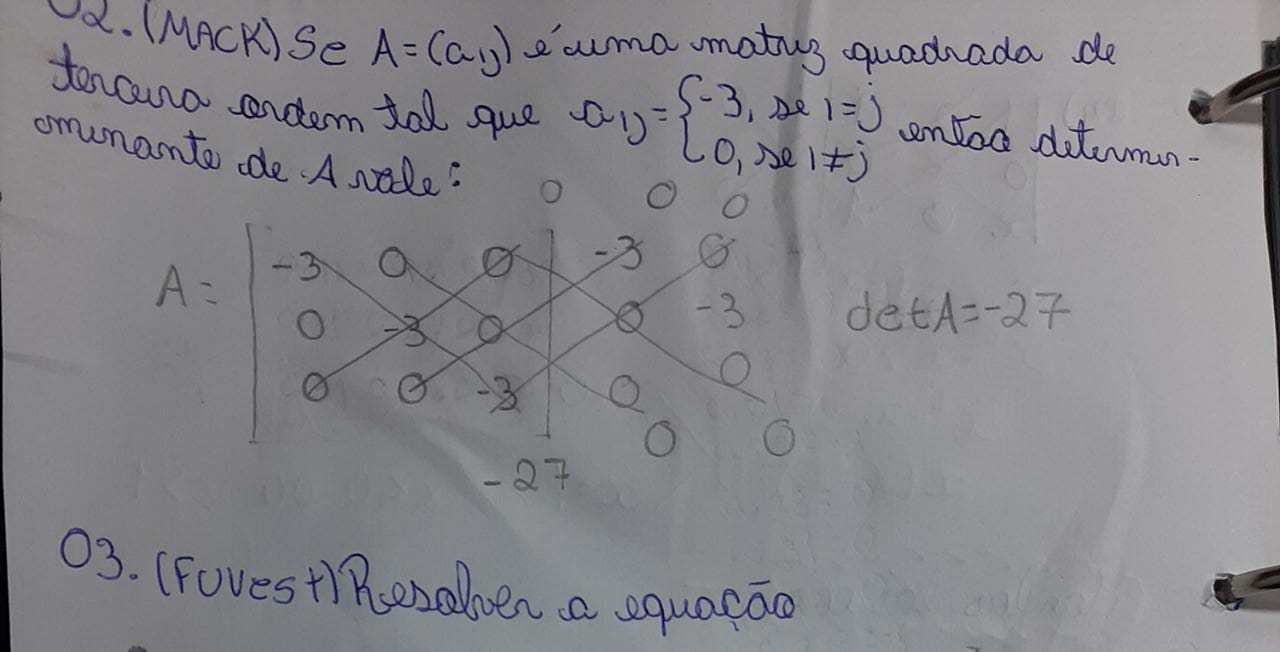 02. (MACK) Se A = (aij) é uma matriz quadrada de
terceira ordem tal que aij = { -3, se i = j
0, se i ≠ j então determin-
ominante de A vale:
0 0 0
A = | -3 0 0 | -3 0
0 -3 0 0 -3 det A = -27
0 0 -3 0 0
0 0
-27
03. (Fuvest) Resolver a equação